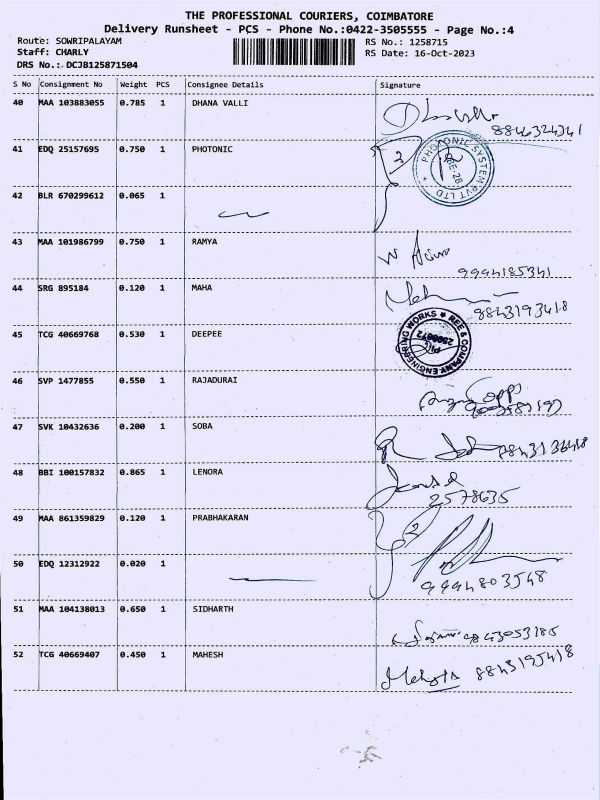 THE PROFESSIONAL COURIERS, COIMBATORE
Delivery Runsheet - PCS - Phone No.:0422-3505555 - Page No.:4
Route: SOWRIPALAYAM RS No.: 1258715
Staff: CHARLY RS Date: 16-Oct-2023
DRS No.: DCJB125871504
S No Consignment No Weight PCS Consignee Details Signature
40 MAA 103883055 0.785 1 DHANA VALLI
8846324341
41 EDQ 25157695 0.750 1 PHOTONIC
PHOTONIC SYSTEM PVT LTD
42 BLR 670299612 0.065 1
43 MAA 101986799 0.750 1 RAMYA
9994185341
44 SRG 895184 0.120 1 MAHA
8843193418
45 TCG 40669768 0.530 1 DEEPEE
REE & COMPANY ENGINEERING WORKS
46 SVP 1477855 0.550 1 RAJADURAI
47 SVK 10432636 0.200 1 SOBA
48 BBI 100157832 0.865 1 LENORA
2578635
49 MAA 861359829 0.120 1 PRABHAKARAN
2
50 EDQ 12312922 0.020 1
9994803548
51 MAA 104138013 0.650 1 SIDHARTH
9843053186
52 TCG 40669407 0.450 1 MAHESH
8843195418